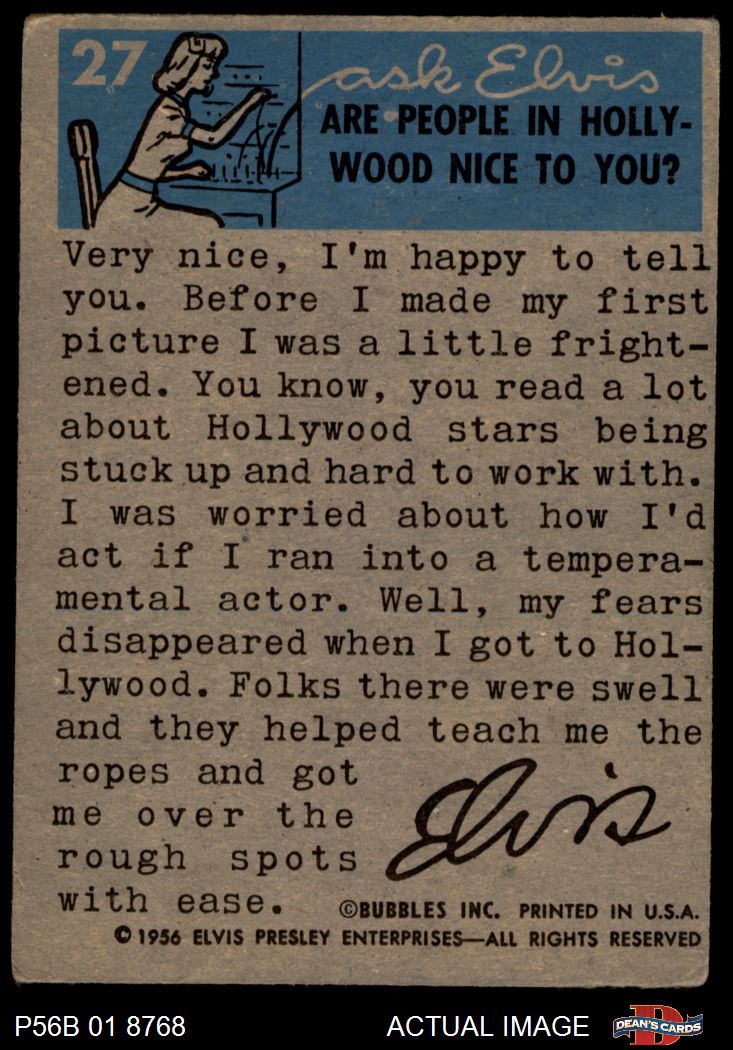 27
ask Elvis
ARE PEOPLE IN HOLLY-
WOOD NICE TO YOU?
Very nice, I'm happy to tell
you. Before I made my first
picture I was a little fright-
ened. You know, you read a lot
about Hollywood stars being
stuck up and hard to work with.
I was worried about how I'd
act if I ran into a tempera-
mental actor. Well, my fears
disappeared when I got to Hol-
lywood. Folks there were swell
and they helped teach me the
ropes and got
me over the
rough spots
with ease.
Elvis
©BUBBLES INC. PRINTED IN U.S.A.
© 1956 ELVIS PRESLEY ENTERPRISES—ALL RIGHTS RESERVED
P56B 01 8768
ACTUAL IMAGE
D
DEAN'S CARDS